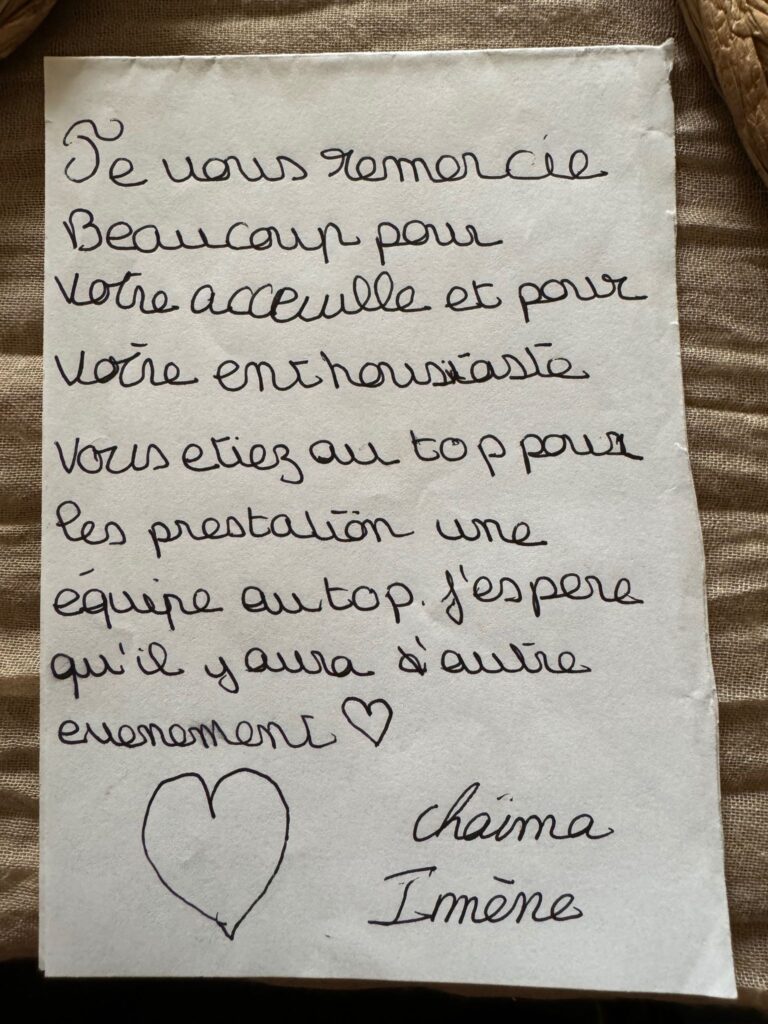 Je vous remercie
Beaucoup pour
votre acceuille et pour
votre enthousiaste
vous etiez au top pour
les prestation une
équipe au top. j'espere
qu'il y aura d'autre
evenement ♡
chaïma
Imène